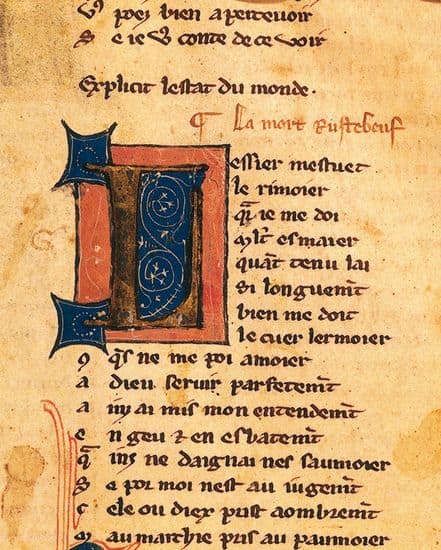 V⁹ poez bien aperceuoir
S e ie vȝ conte de ce voir
Explicit lestat du monde.
¶ La mort Rustebeuf
Lessier mestuet
le rimoier
q̃r ie me doi
ml't esmaier
quāt tenu lai
si longuem̃t
bien me doit
le cuer lermoier
c õqs ne me poi amoier
a dieu seruir parfetem̃t
a inz ai mis mon entendem̃t
e n geu ⁊ en esbatem̃t
q̃ inz ne daignai nes saumoier
S e por moi nest au iugem̃t
c ele ou diex prist aombrem̃t
m au marchie pris au paumoier